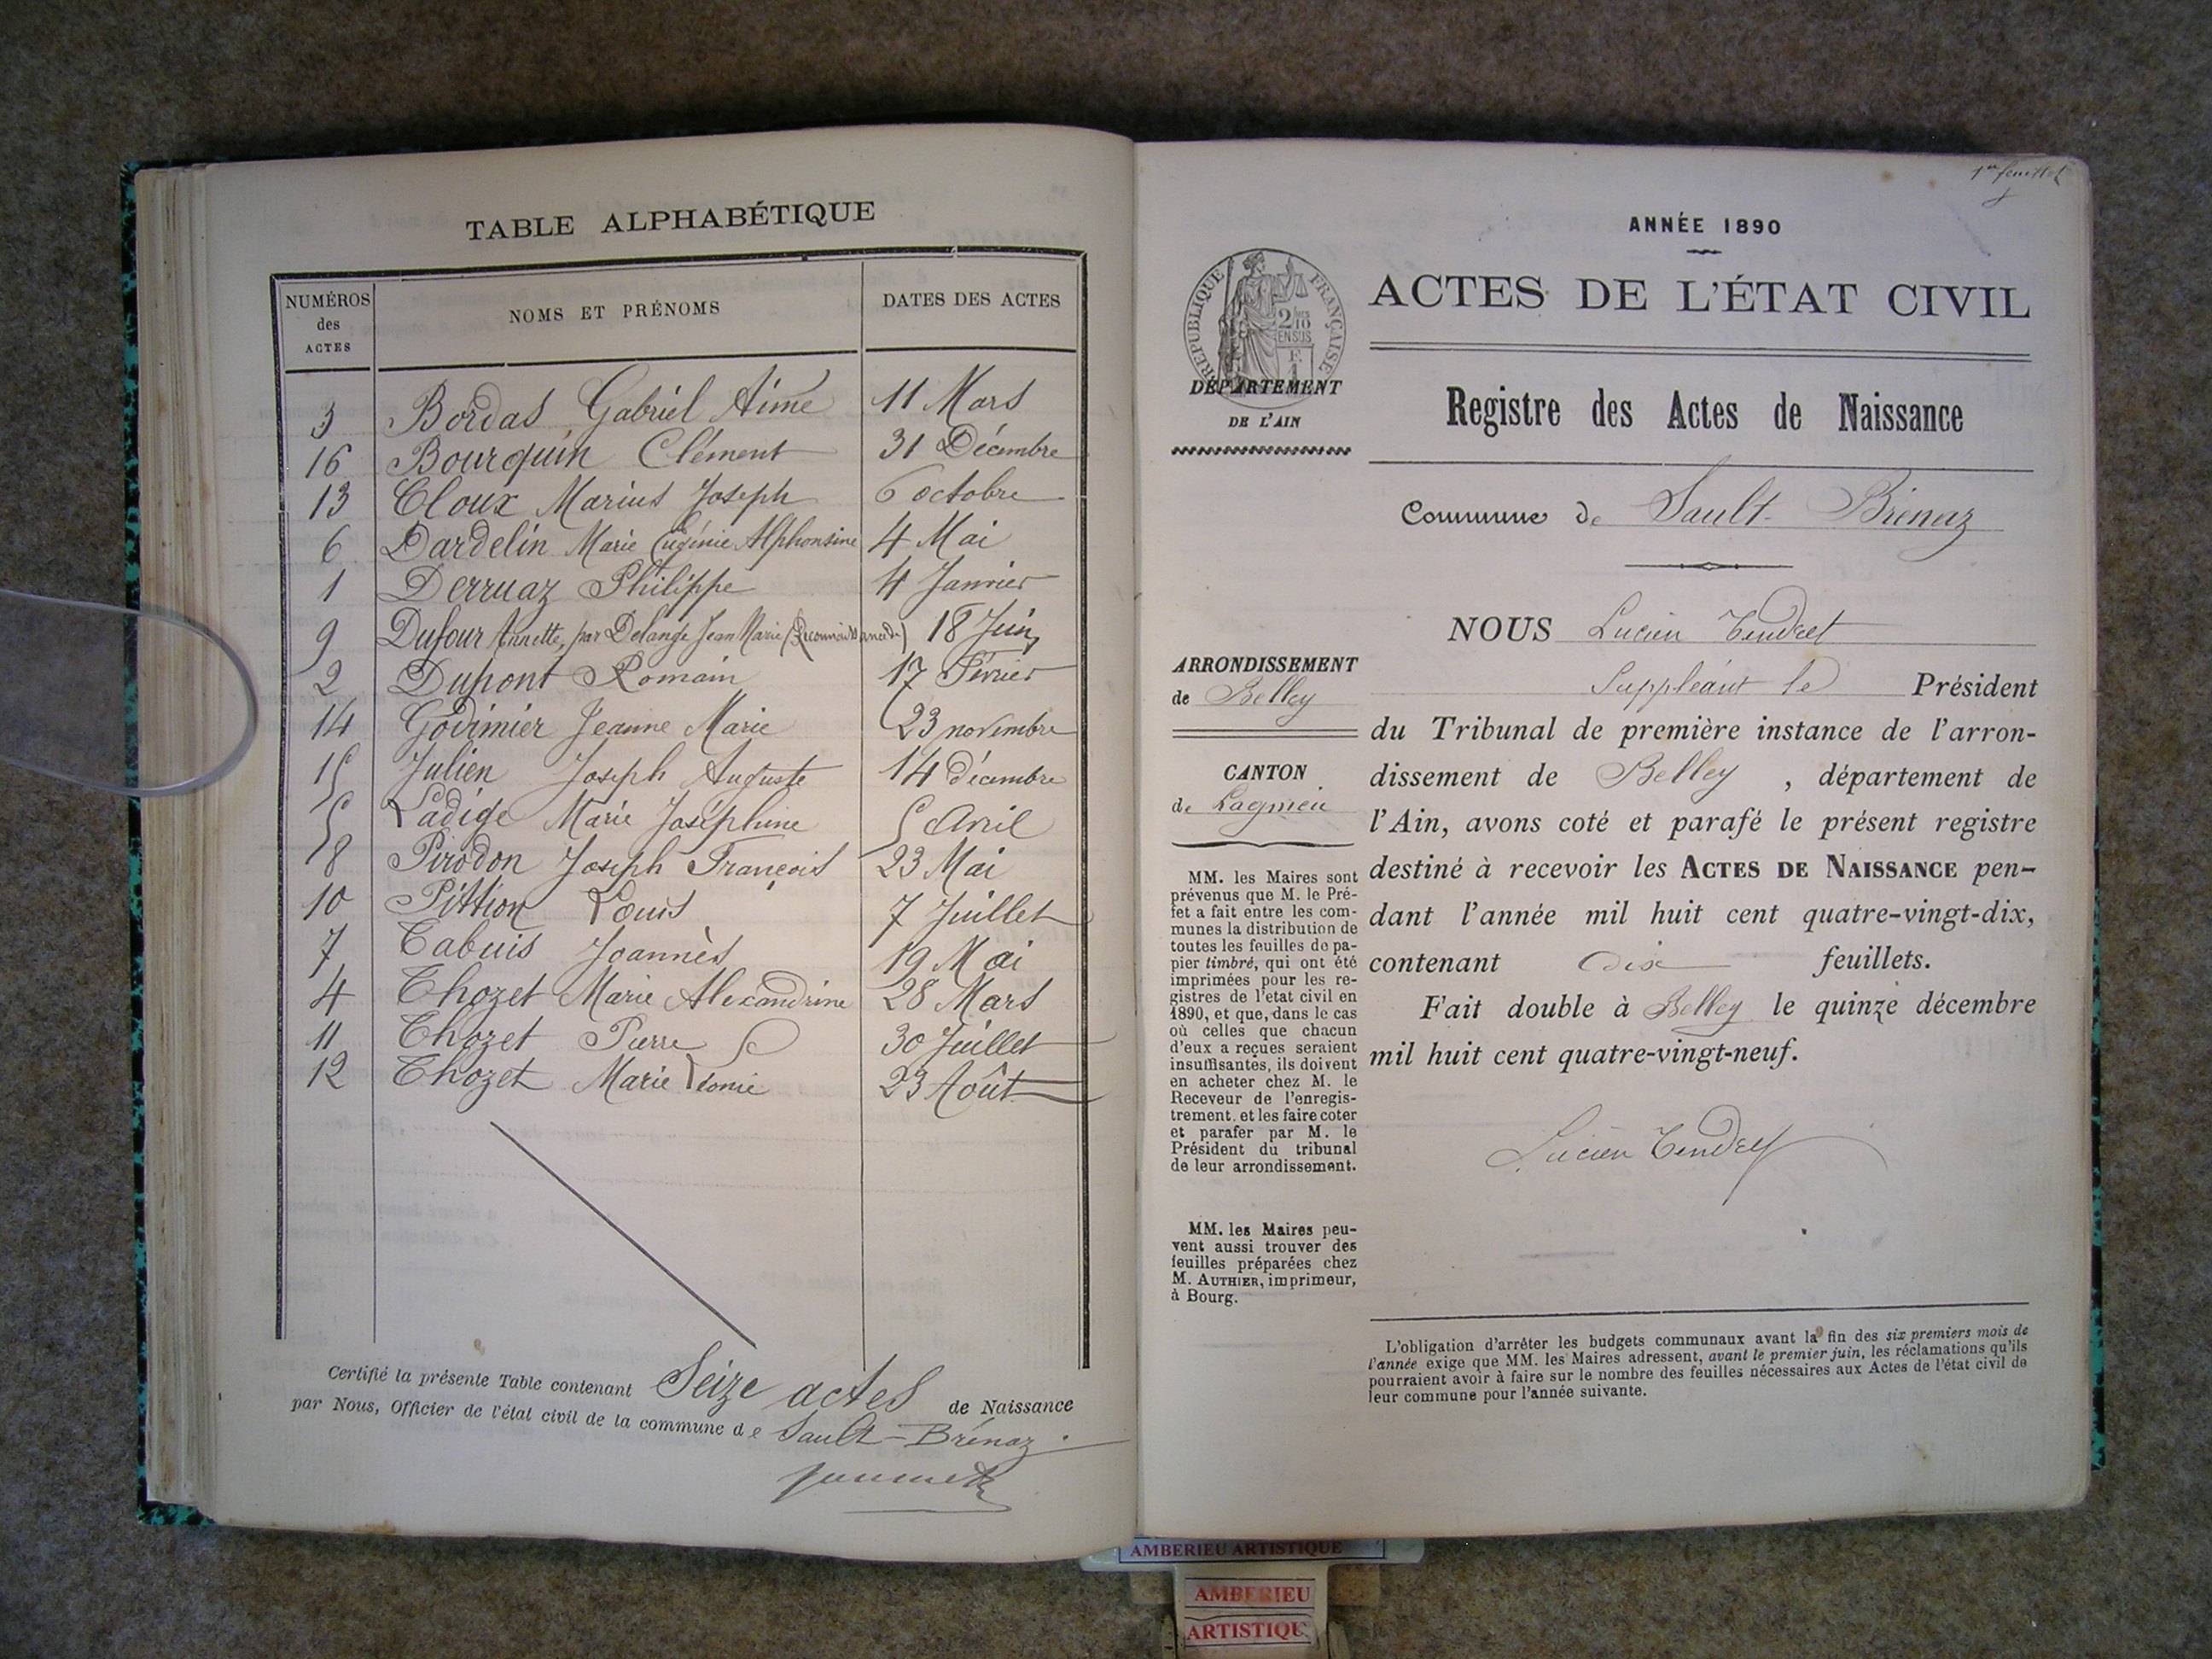 TABLE ALPHABÉTIQUE
NUMÉROS des ACTES
NOMS ET PRÉNOMS
DATES DES ACTES
3 Bordas Gabriel Aimé 11 Mars
16 Bourquin Clément 31 Décembre
13 Cloux Marius Joseph 6 octobre
6 Dardelin Marie Eugénie Alphonsine 4 Mai
1 Derruaz Philippe 4 Janvier
9 Dufour Annette, par Delange Jean Marie (Reconnaissance de) 18 Juin
2 Dupont Romain 17 Février
14 Godinier Jeanne Marie 23 novembre
15 Julien Joseph Auguste 14 décembre
5 Ladige Marie Joséphine 5 Avril
8 Pirodon Joseph François 23 Mai
10 Pittion Louis 7 Juillet
7 Tabuis Joannès 19 Mai
4 Thozet Marie Alexandrine 28 Mars
11 Thozet Pierre 30 Juillet
12 Thozet Marie Léonie 23 Août
Certifié la présente Table contenant Seize actes de Naissance
par Nous, Officier de l'état civil de la commune de Sault-Brénaz
1er feuillet
ANNÉE 1890
RÉPUBLIQUE FRANÇAISE
2/10 EN SUS
ACTES DE L'ÉTAT CIVIL
DÉPARTEMENT
DE L'AIN
Registre des Actes de Naissance
Commune de Sault-Brénaz
NOUS Lucien Tendret
Suppléant le Président
ARRONDISSEMENT
de Belley
du Tribunal de première instance de l'arron-
CANTON
de Lagnieu
dissement de Belley, département de
l'Ain, avons coté et parafé le présent registre
destiné à recevoir les ACTES DE NAISSANCE pen-
dant l'année mil huit cent quatre-vingt-dix,
contenant dix feuillets.
Fait double à Belley le quinze décembre
mil huit cent quatre-vingt-neuf.
Lucien Tendret
MM. les Maires sont
prévenus que M. le Pré-
fet a fait entre les com-
munes la distribution de
toutes les feuilles de pa-
pier timbré, qui ont été
imprimées pour les re-
gistres de l'etat civil en
1890, et que, dans le cas
où celles que chacun
d'eux a reçues seraient
insuffisantes, ils doivent
en acheter chez M. le
Receveur de l'enregis-
trement. et les faire coter
et parafer par M. le
Président du tribunal
de leur arrondissement.
MM. les Maires peu-
vent aussi trouver des
feuilles préparées chez
M. AUTHIER, imprimeur,
à Bourg.
L'obligation d'arrêter les budgets communaux avant la fin des six premiers mois de
l'année exige que MM. les Maires adressent, avant le premier juin, les réclamations qu'ils
pourraient avoir à faire sur le nombre des feuilles nécessaires aux Actes de l'état civil de
leur commune pour l'année suivante.
AMBERIEU ARTISTIQUE
AMBERIEU
ARTISTIQU